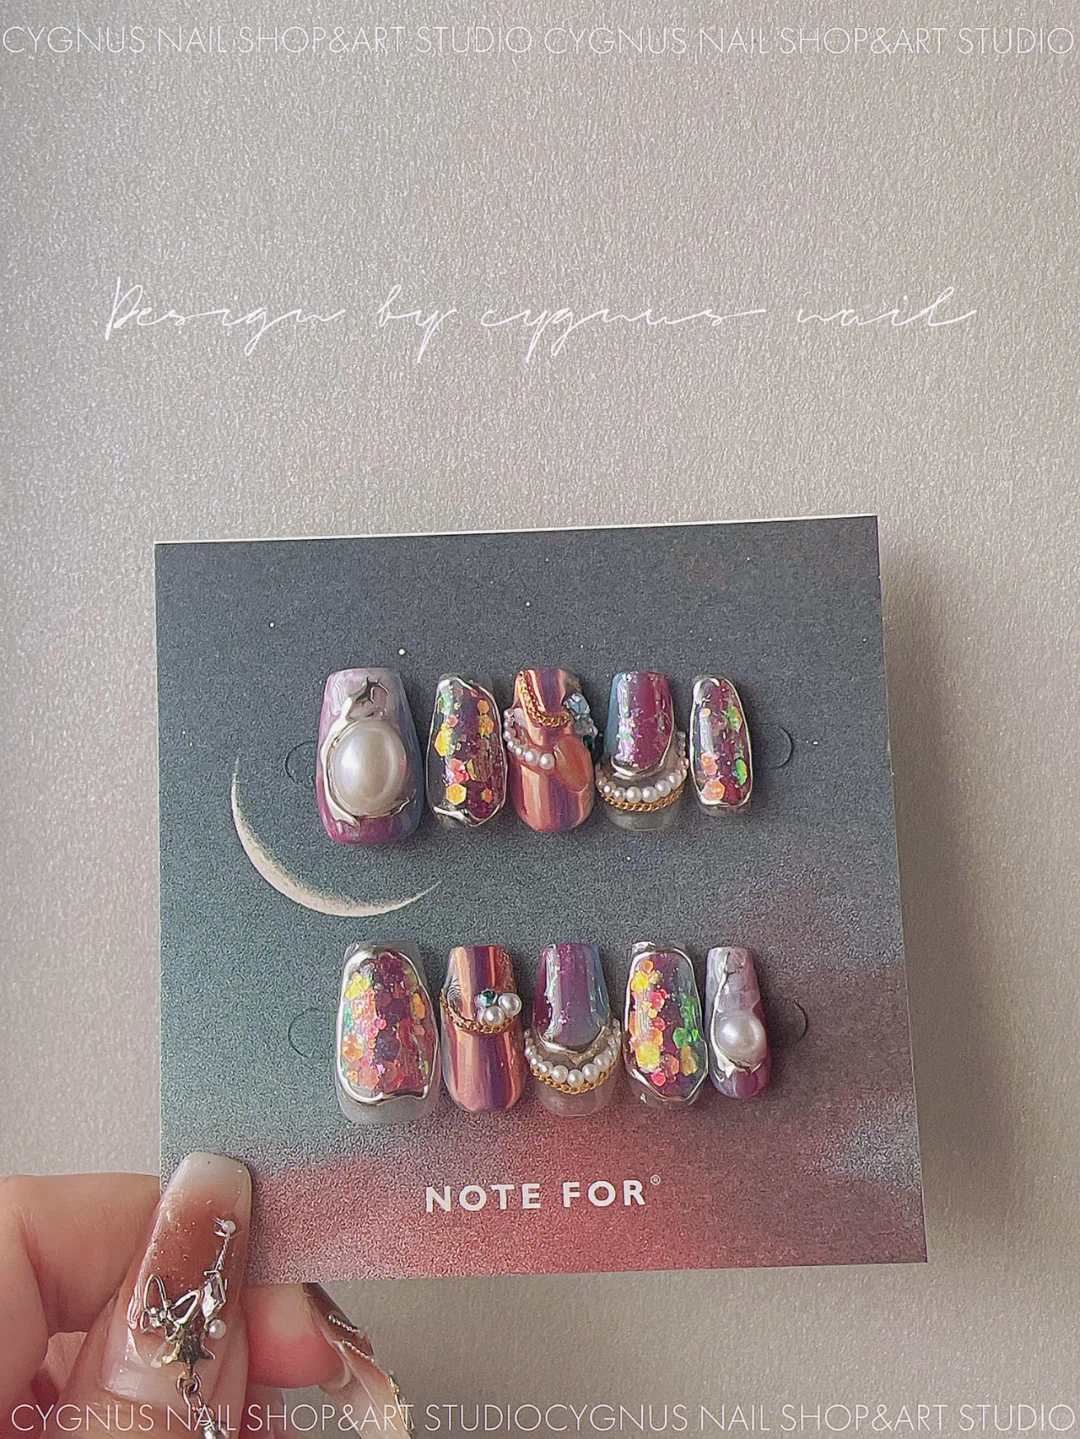 CYGNUS NAIL SHOP&ART STUDIO CYGNUS NAIL SHOP&ART STUDIO
Design by cygnus nail
NOTE FOR®
CYGNUS NAIL SHOP&ART STUDIOCYGNUS NAIL SHOP&ART STUDIO